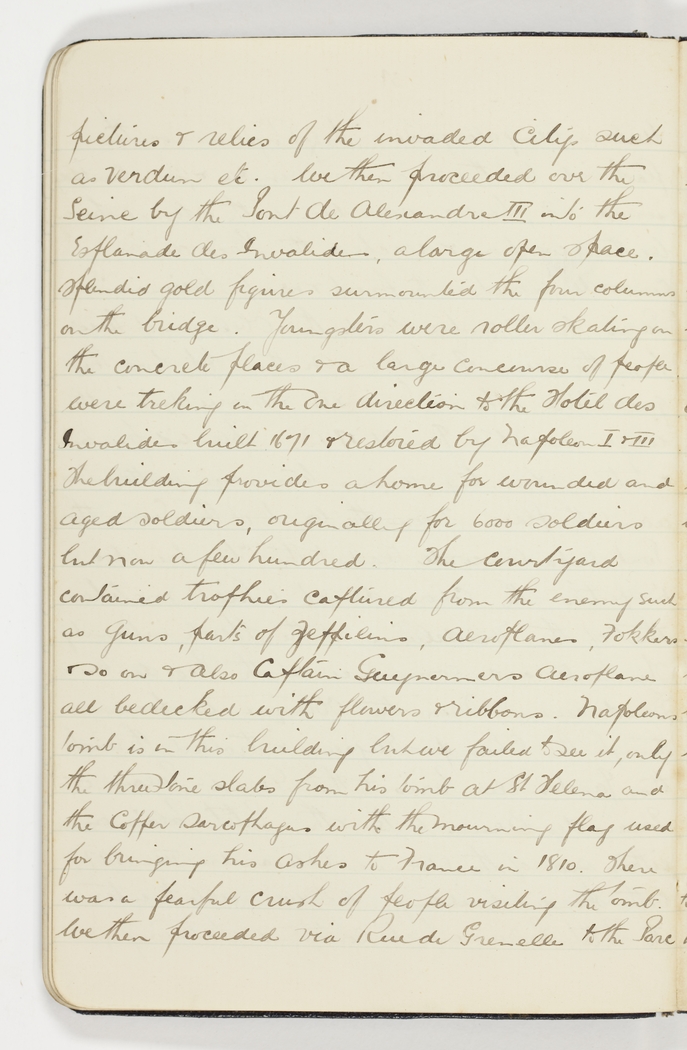 pictures & relics of the invaded Citys such
as Verdun etc. We then proceeded over the
Seine by the Pont de Alexandre III into the
Esplanade des Invalides, a large open space.
Splendid gold figures surmounted the four columns
on the bridge. Youngsters were roller skating on
the concrete places & a large concourse of people
were treking in the one direction to the Hotel des
Invalides built 1671 & restored by Napoleon I & III
The building provides a home for wounded and
aged soldiers, originally for 6000 soldiers
but now a few hundred. The courtyard
contained trophies captured from the enemy such
as Guns, parts of Zeppilins, Aeroplanes, Fokkers
& so on & also Captain Guynermers Aeroplane
all bedecked with flowers & ribbons. Napoleons
tomb is in this building but we failed to see it, only
the three stone slabs from his tomb at St Helena and
the Copper Sarcophagus with the mourning flag used
for bringing his ashes to France in 1810. There
was a fearful crush of people visiting the tomb.
We then proceeded via Rue de Grenelle to the Parc